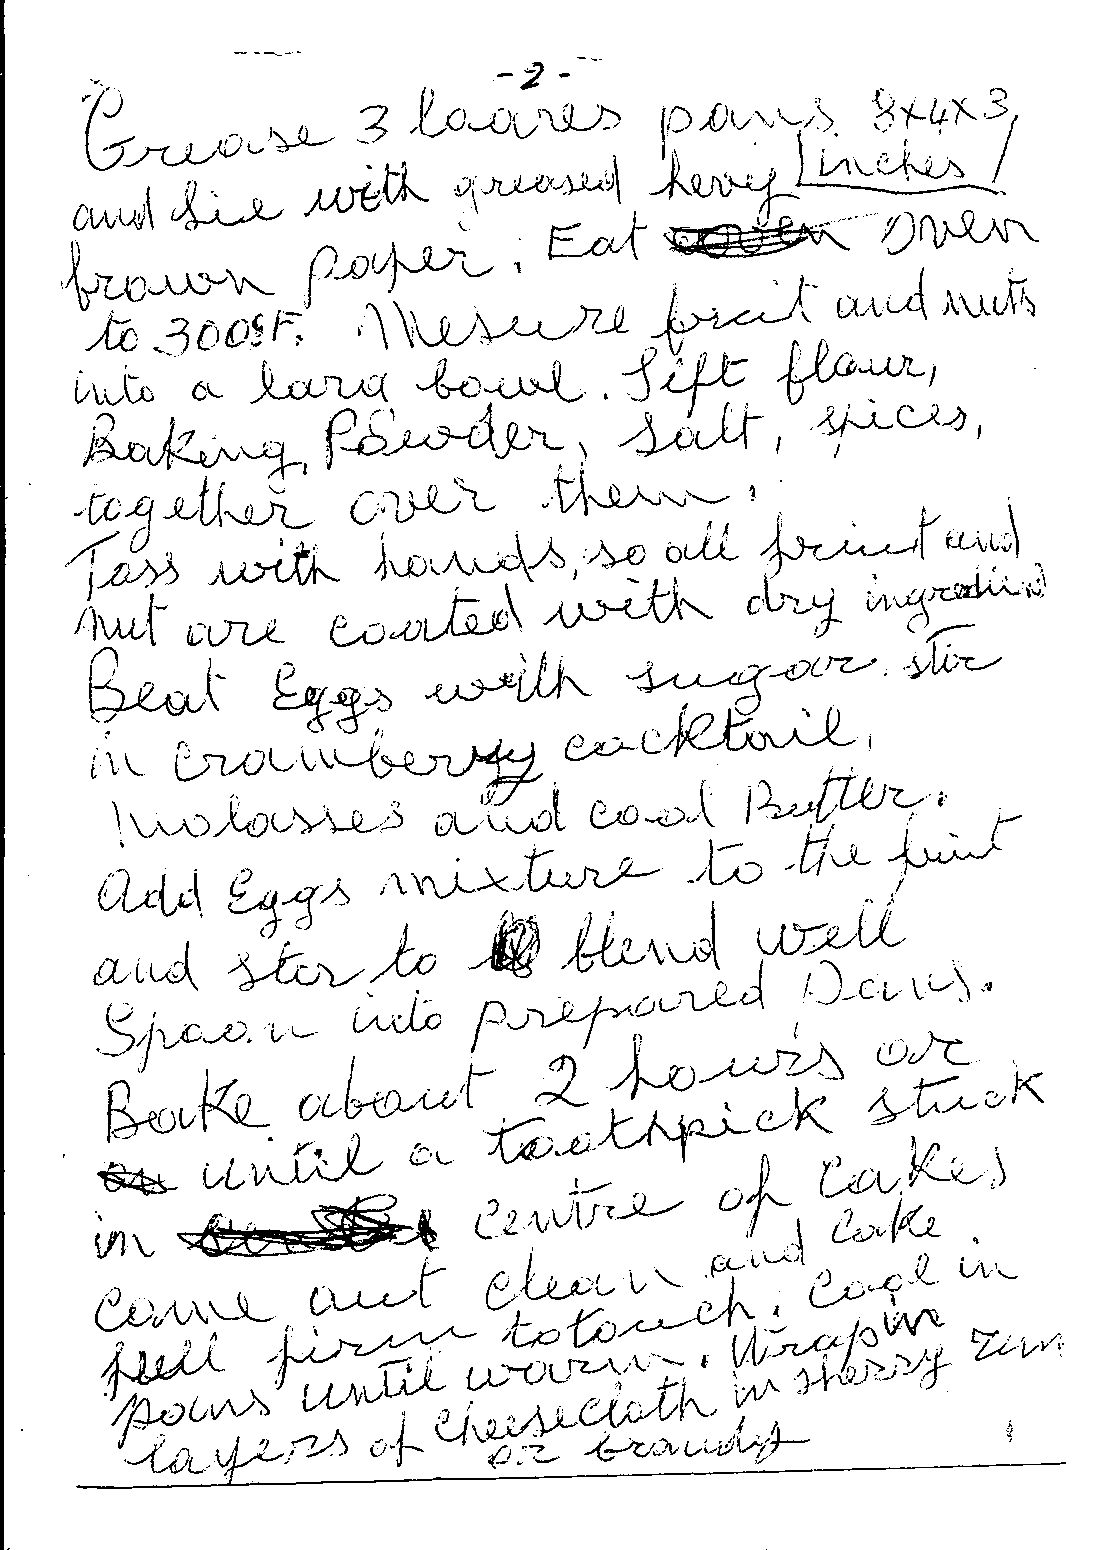 -2-
Grease 3 loaves pans 8x4x3
and line with greased hevy inches
brown paper. Eat oven
to 300°F. Mesure fruit and nuts
into a larg bowl. Sift flour,
Baking Powder, salt, spices,
together over them.
Toss with hands, so all fruit and
nut are coated with dry ingredient
Beat Eggs with sugar. stir
in cramberry cocktail,
molasses and cool Butter.
Add Eggs mixture to the fruit
and stir to blend well
Spoon into prepared Pans.
Bake about 2 hours or
until a toothpick stuck
in centre of cakes
come out clean and cake
feell firm to touch. Cool in
pans until warm. Wrap in
layers of cheesecloth in sherry rum
or brandy